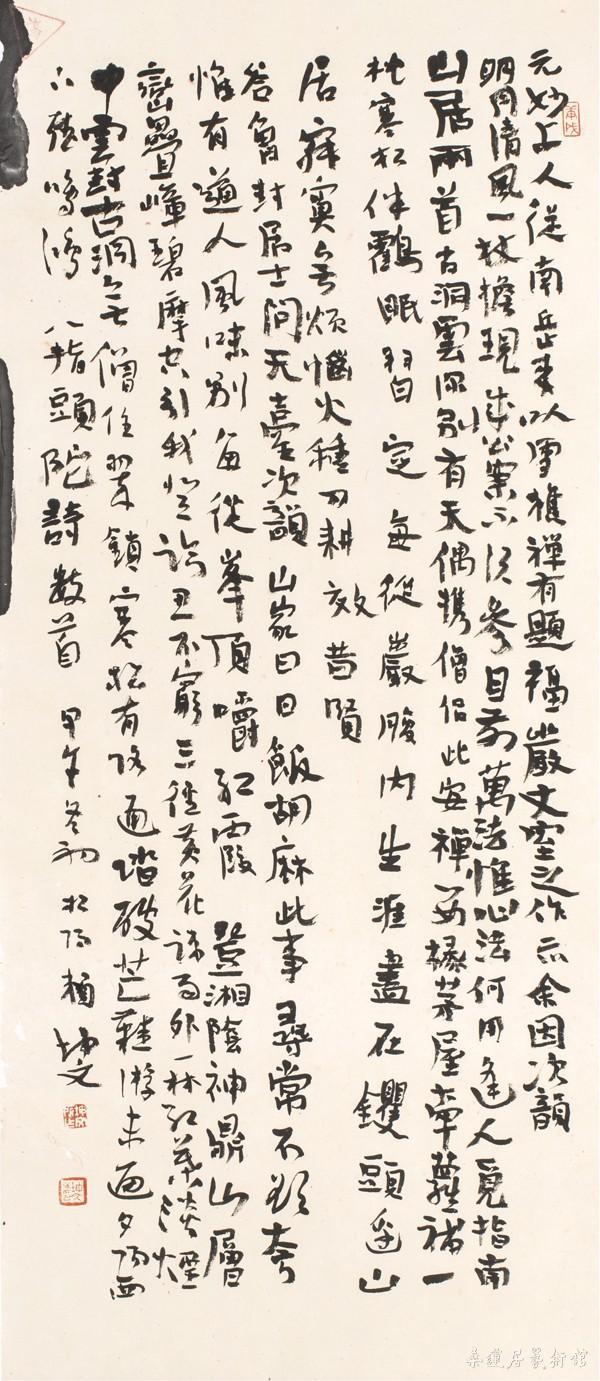 元妙上人從南岳來以禪有題福嚴丈室之作示余因次韻
明月清風一枝擔現成公案不須參目前萬法惟心法何用逢人覓指南
山居兩首古洞雲深別有天偶攜僧侶此安禪茅屋牽蘿補一
枕寒松伴鶴眠習定每從巖腹內生涯盡在钁頭邊山
居寂寞無煩惱火種刀耕效昔賢
答魯封居士問天臺次韻 山家日日飯胡麻此事尋常不欲夸
惟有道人風味別每從峯頂嚼紅霞 登湘陰神鼎山層
巒疊嶂碧摩空引我登臨思不窮三徑黃花疏雨外一林紅葉淡煙
中雲封古洞無僧住翠鎖寒松有路通踏破芒鞋游未遍夕陽西
下聽鳴鴻 八指頭陀詩數首 甲午冬初 坤文